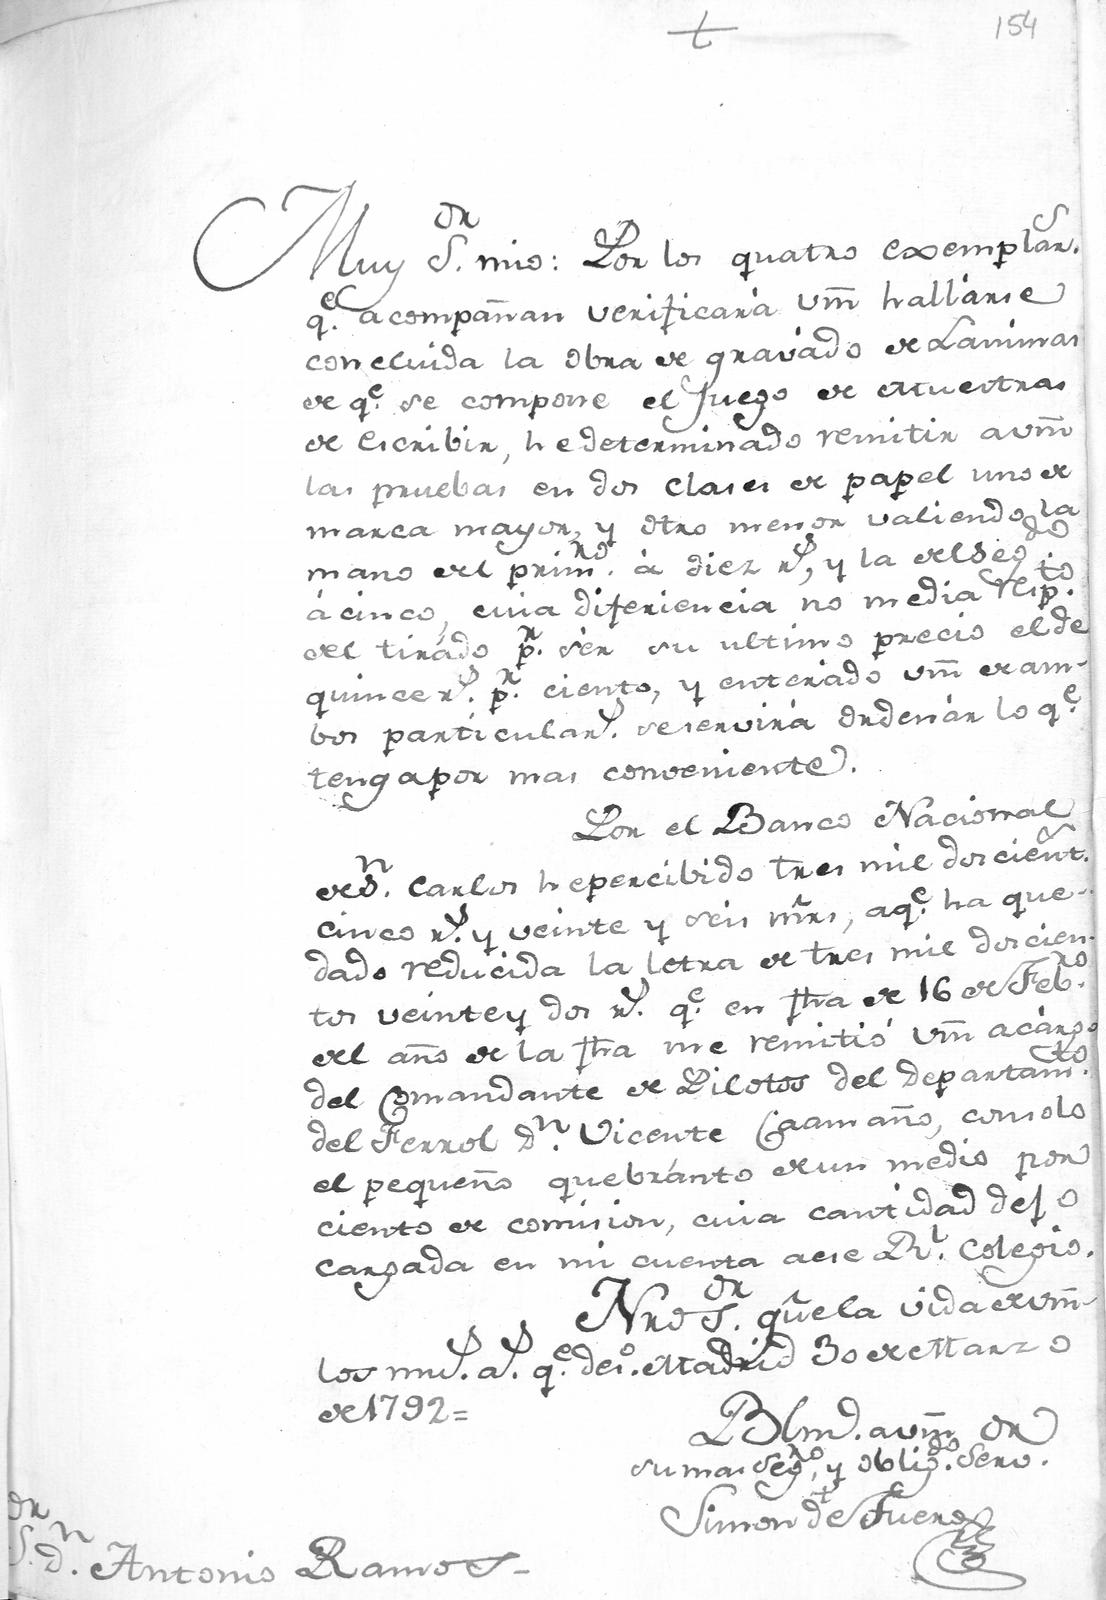 154
Muy S.or mio: Por los quatro exemplar.s
q.e acompañan verificará vm̃ hallarse
concluida la obra de gravádo de Laminas
de q.e se compone el Juego de Muestras
de Escribir, he determinado remitir a vm̃
las pruebas en dos clases de papel uno de
marca mayor, y otro menor valiendo la
mano del prim.ro á diez r.s, y la del seg.do
á cinco, cuia diferiencia no media resp.to
del tirádo p.r sér su ultimo precio el de
quince r.s p.r ciento, y enterádo vm̃ de am-
bos particular.s se servirá ordenár lo q.e
tenga por mas conveniente.
Por el Banco Nacional
de S.n Carlos he percibido tres mil doscient.s
cinco r.s y veinte y séis mrs̃, a q.e ha que-
dado reducida la letra de tres mil doscien-
tos veinte y dos r.s q.e en fha de 16 de Feb.ro
del año de la fha me remitió vm̃ a cárgo
del Comandante de Pilotos del departam.to
del Ferrol D.n Vicente Caamaño, con solo
el pequeño quebránto de un medio por
ciento de comision, cuia cantidad dejo
cargada en mi cuenta a ese R.l Colegio.
Nro S.or gũe la vida de vm̃
los mu.s a.s q.e des.o Madrid 30 de Marzo
de 1792=
Blmd. a vm̃
su mas seg.ro, y oblig.do serv.
Simon de Fuero
S.or D.n Antonio Ramos-